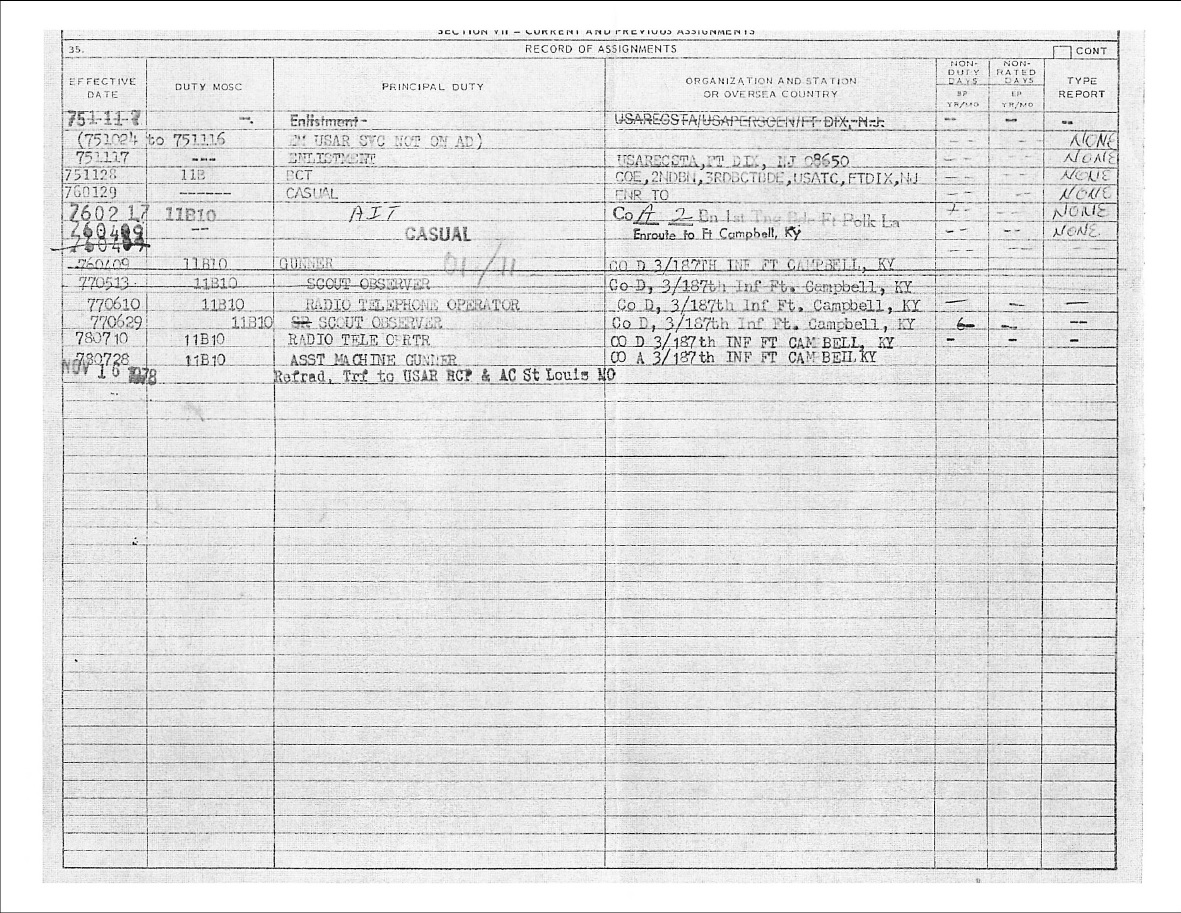 SECTION VII - CURRENT AND PREVIOUS ASSIGNMENTS
35. RECORD OF ASSIGNMENTS CONT
EFFECTIVE DATE DUTY MOSC PRINCIPAL DUTY ORGANIZATION AND STATION OR OVERSEA COUNTRY NON-DUTY DAYS EP YR/MO NON-RATED DAYS EP YR/MO TYPE REPORT
751-11-7 -. Enlistment- USARECSTA/USAPERSCEN/FT DIX, N.J. -- -- --
(751024 to 751116 EM USAR SVC NOT ON AD) -- -- NONE
751117 --- ENLISTMENT USARECSTA, FT DIX, NJ 08650 -- -- NONE
751128 11B BCT COE, 2NDBN, 3RDBCTBDE, USATC, FTDIX, NJ -- -- NONE
760129 ------ CASUAL ENR TO -- -- NONE
760217 11B10 AIT Co A 2 Bn 1st Tng Bde Ft Polk La -- -- NONE
760409 -- CASUAL Enroute to Ft Campbell, KY -- -- NONE
760409 -- -- --
760409 11B10 GUNNER CO D 3/187TH INF FT CAMPBELL, KY
770513 11B10 SCOUT OBSERVER Co D, 3/187th Inf Ft. Campbell, KY
770610 11B10 RADIO TELEPHONE OPERATOR Co D, 3/187th Inf Ft. Campbell, KY - - -
770629 11B10 SR SCOUT OBSERVER Co D, 3/187th Inf Ft. Campbell, KY - --
780710 11B10 RADIO TELE OPRTR CO D 3/187th INF FT CAMPBELL, KY - - -
780728 11B10 ASST MACHINE GUNNER CO A 3/187th INF FT CAMPBELL KY
NOV 16 1978 Refrad, Trf to USAR RCP & AC St Louis MO